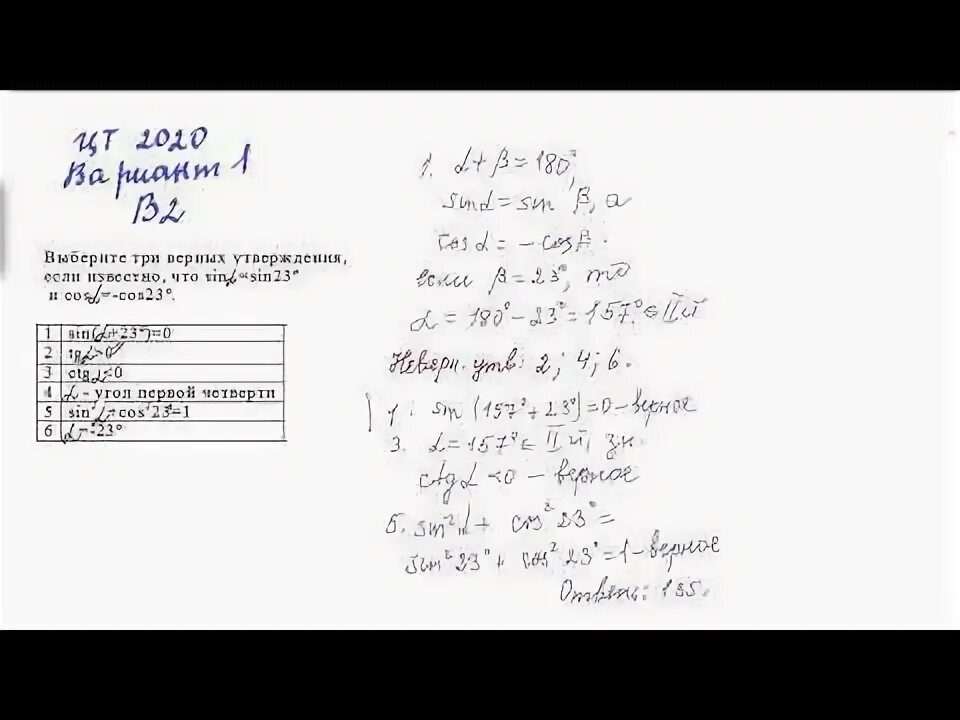 ЦТ 2020
Вариант 1
В2
Выберите три верных утверждения,
если известно, что sinα=sin23°
и cosα=-cos23°.
1 sin(α+23°)=0
2 tgα>0
3 ctgα<0
4 α - угол первой четверти
5 sin²α+cos²23°=1
6 α=-23°
1. α+β=180°,
sinα=sin β, а
cosα=-cosβ.
если β=23°, то
α=180°-23°=157°∈II й
Неверн. утв: 2; 4; 6.
1. sin(157°+23°)=0-верное
3. α=157°∈ II й, зн.
ctgα<0 - верное
5. sin²α+ cos²23°=
sin²23°+ cos²23°=1-верное
Ответ: 135.